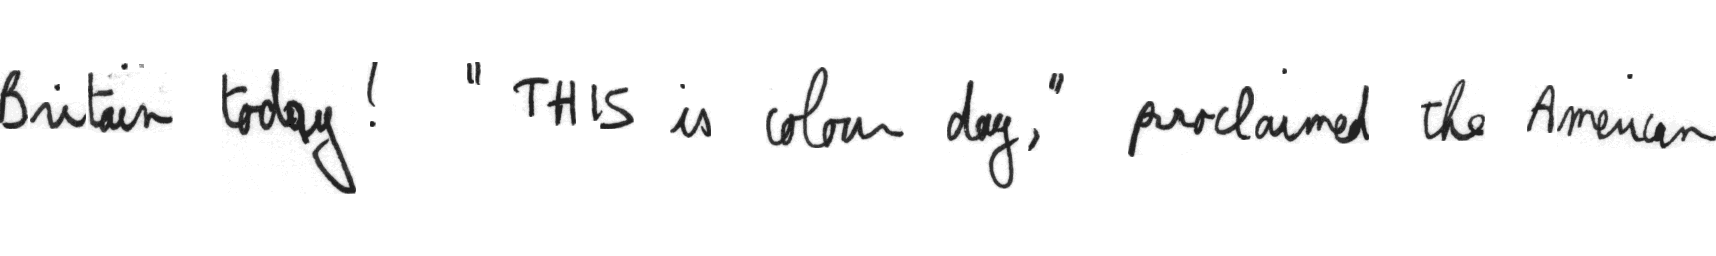 Britain today! "THIS is colour day," proclaimed the American